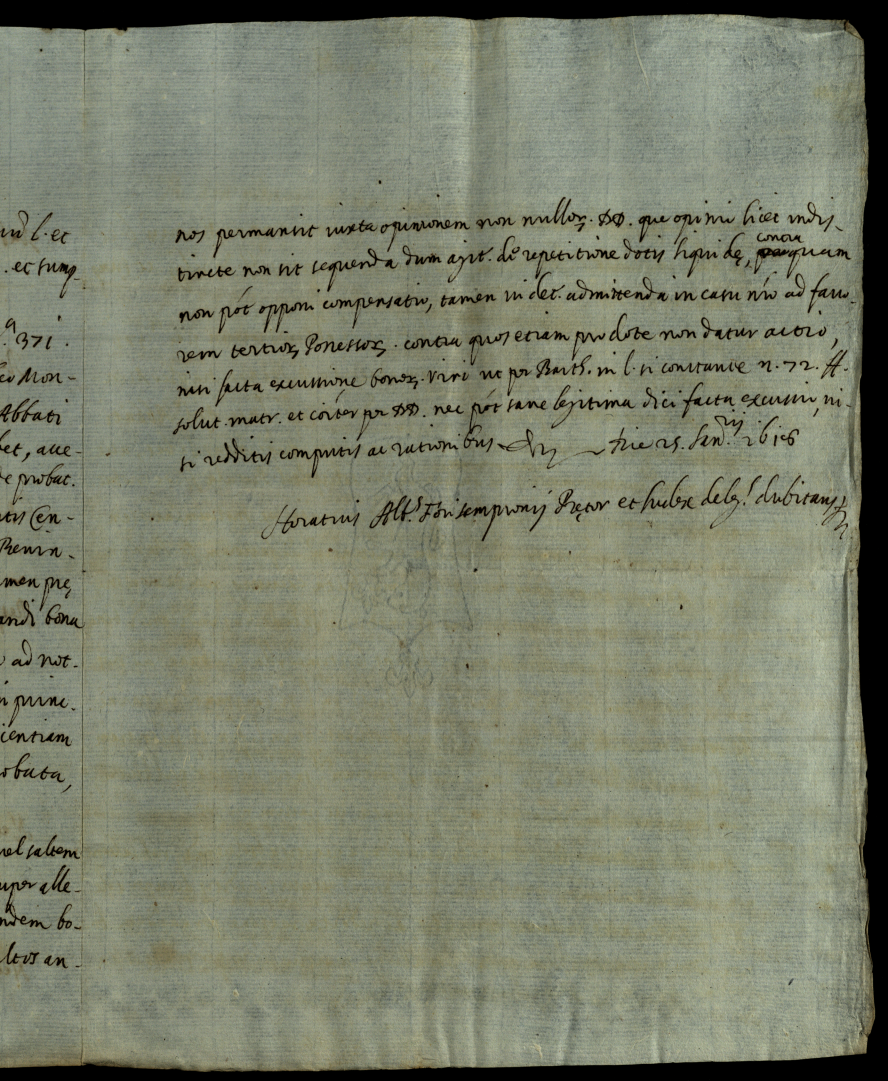 ud l. et
. et sump.
371.
Mon-
Abbati
bet, aue-
de probat.
Cen-
Renin-
men pre
andi bona
ad not-
princ.
cientiam
obata,
vel saltem
uper alle-
ndem bo-
ltos an-
nos permansit iuxta opinionem non nullor. DD. que opinio licet indis-
tincte non sit sequenda dum agit. de repetitione dotis liquidę, contra quam
non pót opponi compensatio, tamen videt. admittenda in casu nro ad fauo-
rem tertior. Possessor. contra quos etiam pro dote non datur actio,
nisi facta excussione bonor. viri ut per Barth. in l. si constante n. 72. ff.
solut. matr. et cóiter per DD. nec pót sane legitima dici facta excussio, ni-
si redditis computis ac rationibus die 25. Ian.rij 1616
Horatius Alb.s Forisempronij Prętor et Iudex deleg.s dubitans